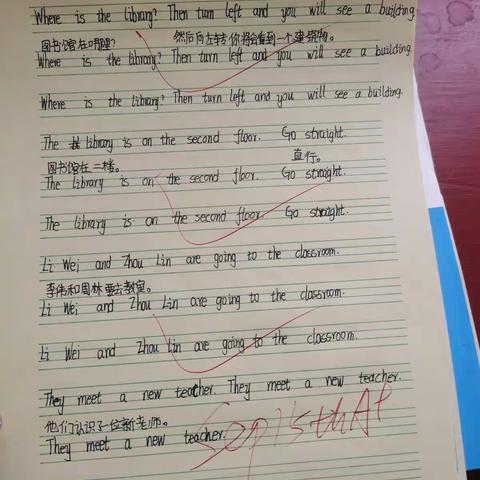 Where is the library? Then turn left and you will see a building.
图书馆在哪里? 然后向左转你将会看到一个建筑物。
Where is the library? Then turn left and you will see a building
Where is the library? Then turn left and you will see a building.
The library is on the second floor. Go straight.
图书馆在二楼。 直行。
The library is on the second floor. Go straight.
The library is on the second floor. Go straight.
Li Wei and Zhou Lin are going to the classroom.
李伟和周林要去教室。
Li Wei and Zhou Lin are going to the classroom.
Li Wei and Zhou Lin are going to the classroom.
They meet a new teacher. They meet a new teacher.
他们认识了一位新老师。
They meet a new teacher.